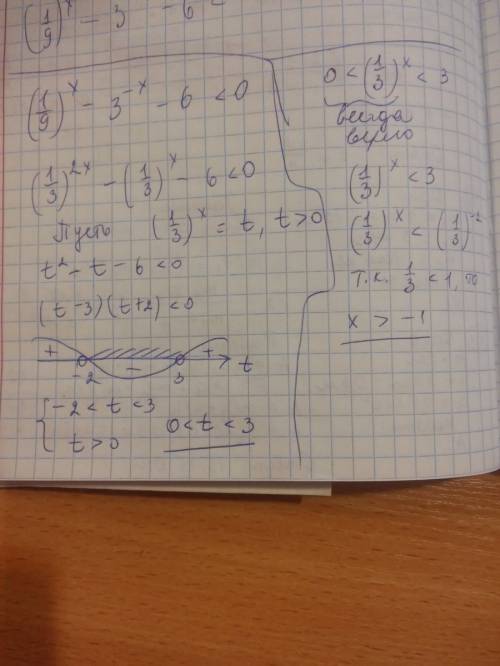 (1/9)^x - 3 - 6
(1/9)^x - 3^{-x} - 6 < 0
(1/3)^{2x} - (1/3)^x - 6 < 0
Пусть (1/3)^x = t, t > 0
t² - t - 6 < 0
(t - 3)(t + 2) < 0
+ - +
-2 3 t
{ -2 < t < 3
t > 0 0 < t < 3
0 < (1/3)^x < 3
всегда
верно
(1/3)^x < 3
(1/3)^x < (1/3)^{-1}
т.к. 1/3 < 1, то
x > -1